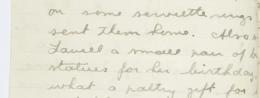 on some serviette rings
sent them home. Also
Laurel a small pair of
statues for her birthday
what a paltry gift for